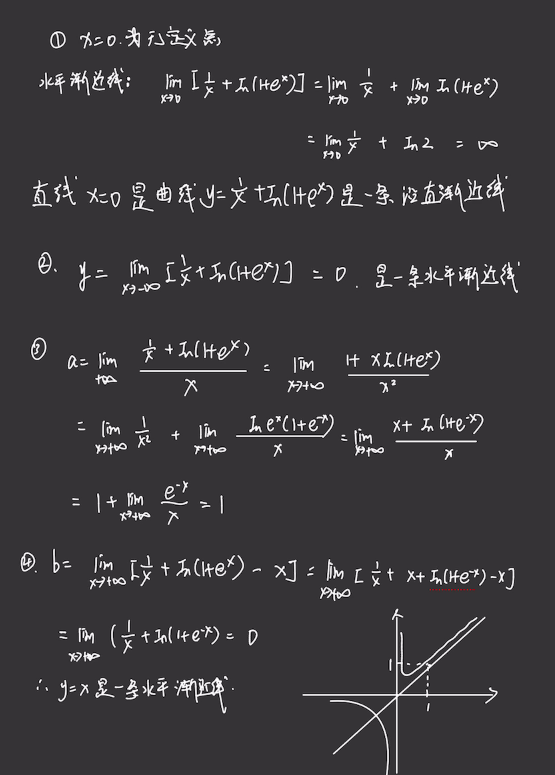 ① x=0.为无定义点
水平渐近线: lim x→0 [1/x + ln(1+e^x)] = lim x→0 1/x + lim x→0 ln(1+e^x)
= lim x→0 1/x + ln2 = ∞
直线 x=0 是曲线 y=1/x+ln(1+e^x) 是一条 直渐近线
②. y = lim x→-∞ [1/x+ln(1+e^x)] = 0. 是一条水平渐近线
③ a= lim +∞ (1/x + ln(1+e^x))/x = lim x→+∞ (1+ xln(1+e^x))/x²
= lim x→+∞ 1/x² + lim x→+∞ (ln e^x(1+e^-x))/x = lim x→+∞ (x+ ln(1+e^-x))/x
= 1+ lim x→+∞ e^-x/x = 1
④. b= lim x→+∞ [1/x + ln(1+e^x) - x] = lim x→+∞ [1/x + x+ ln(1+e^-x)-x]
= lim x→+∞ (1/x + ln(1+e^-x) = 0
∴ y=x 是一条水平渐近线.
1
1